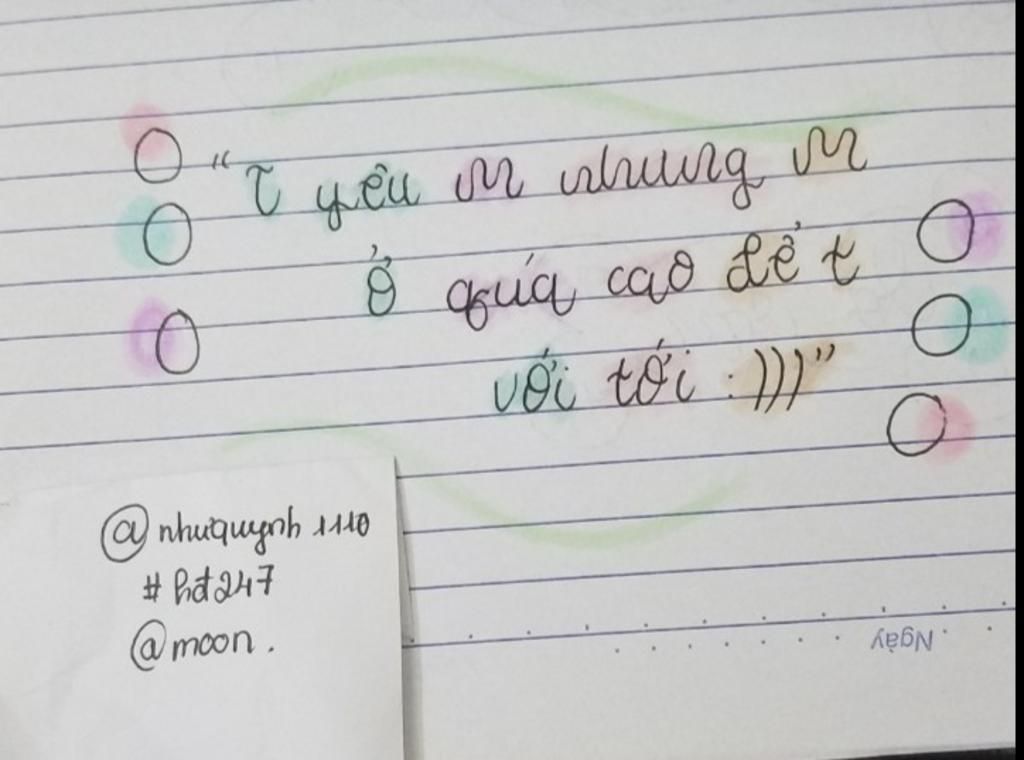 "T yêu m nhưng m
Ở quá cao để t
với tới :)))"
@nhuquynh1110
#hđ247
@moon.
Ngày